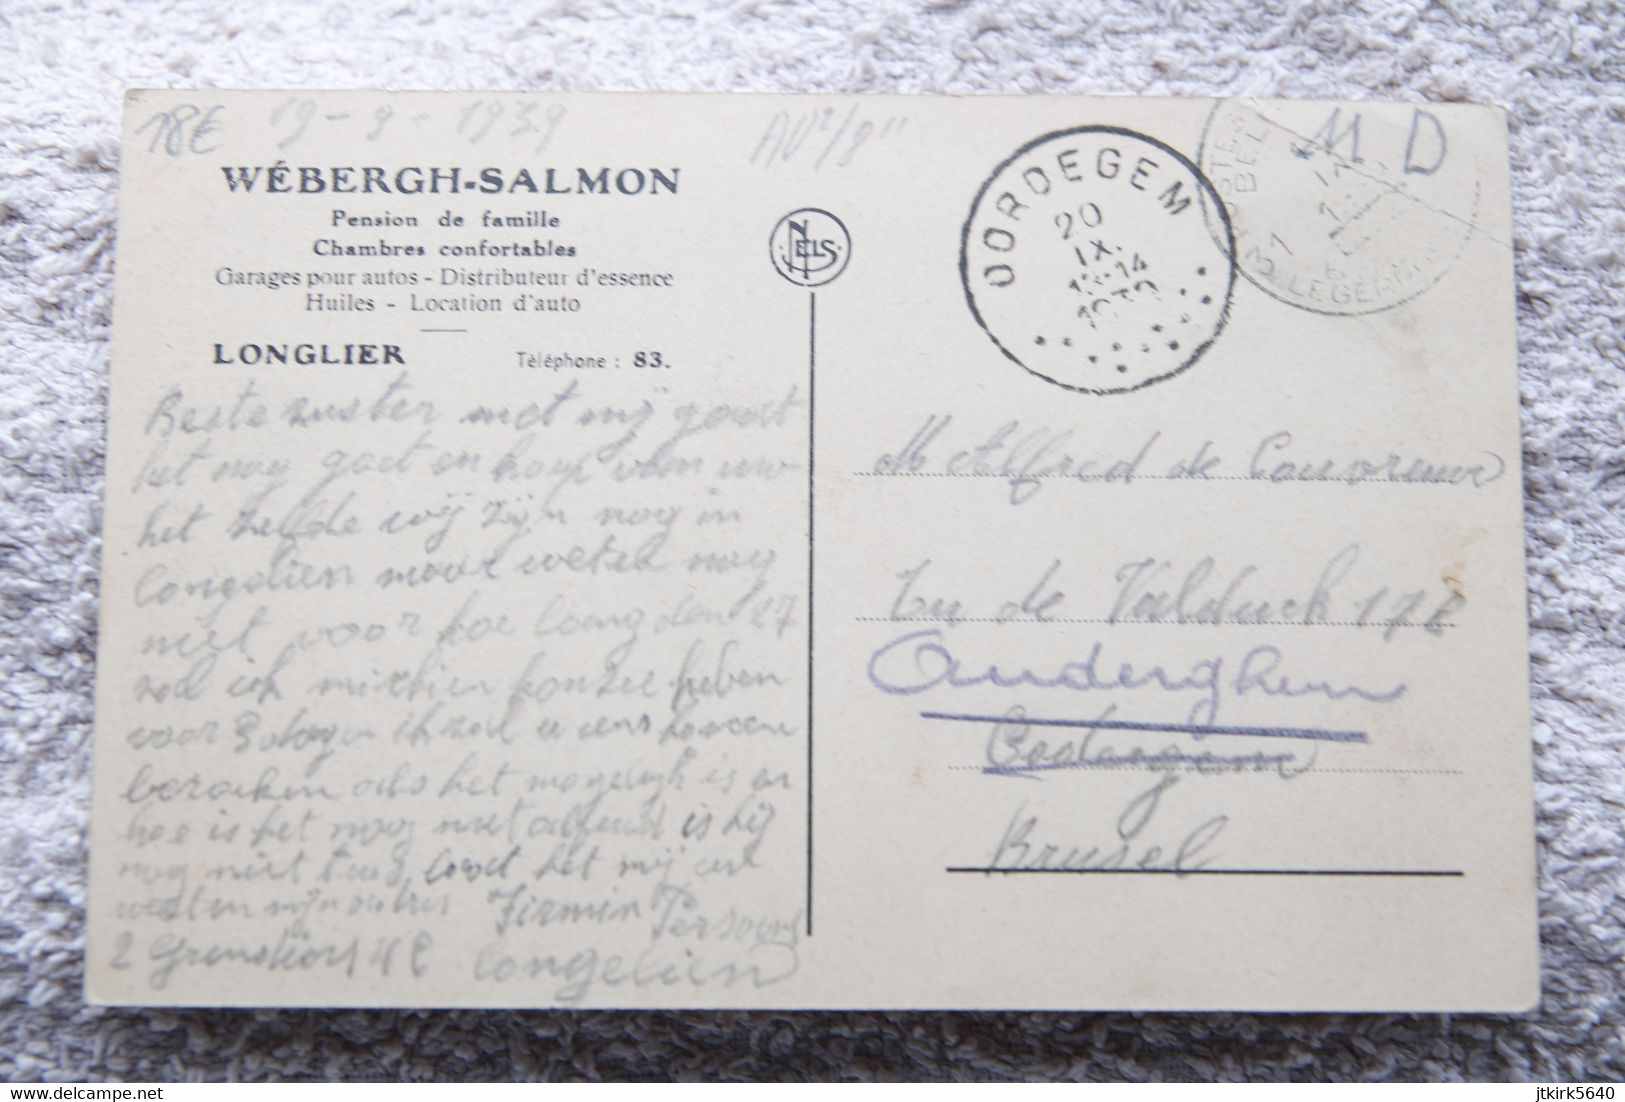 18€ 19-9-1939
WÉBERGH-SALMON
Pension de famille
Chambres confortables
Garages pour autos - Distributeur d'essence
Huiles - Location d'auto
LONGLIER Téléphone : 83.
Beste zuster met mij gaat
het nog goet en hoop van uw
het zelfde wij zijn nog in
Longelien maar weten nog
niet voor hoe lang den 27
zal ik mischien konzee heben
voor 3 dagen ik zal u eens komen
bezoeken als het mogelijk is en
hoe is het nog met alfred is hij
nog niet tuis laat het mij eens
weeten mijn adres Firmin Persoons
2 Grensdiors
Longelien
NELS
OORDEGEM
20
IX
13-14
1939
POSTES
BELG
LEGER
M D
M Alfred de Couvreur
de Valduch 172
Auderghem
Brusel
www.delcampe.net
jtkirk5640